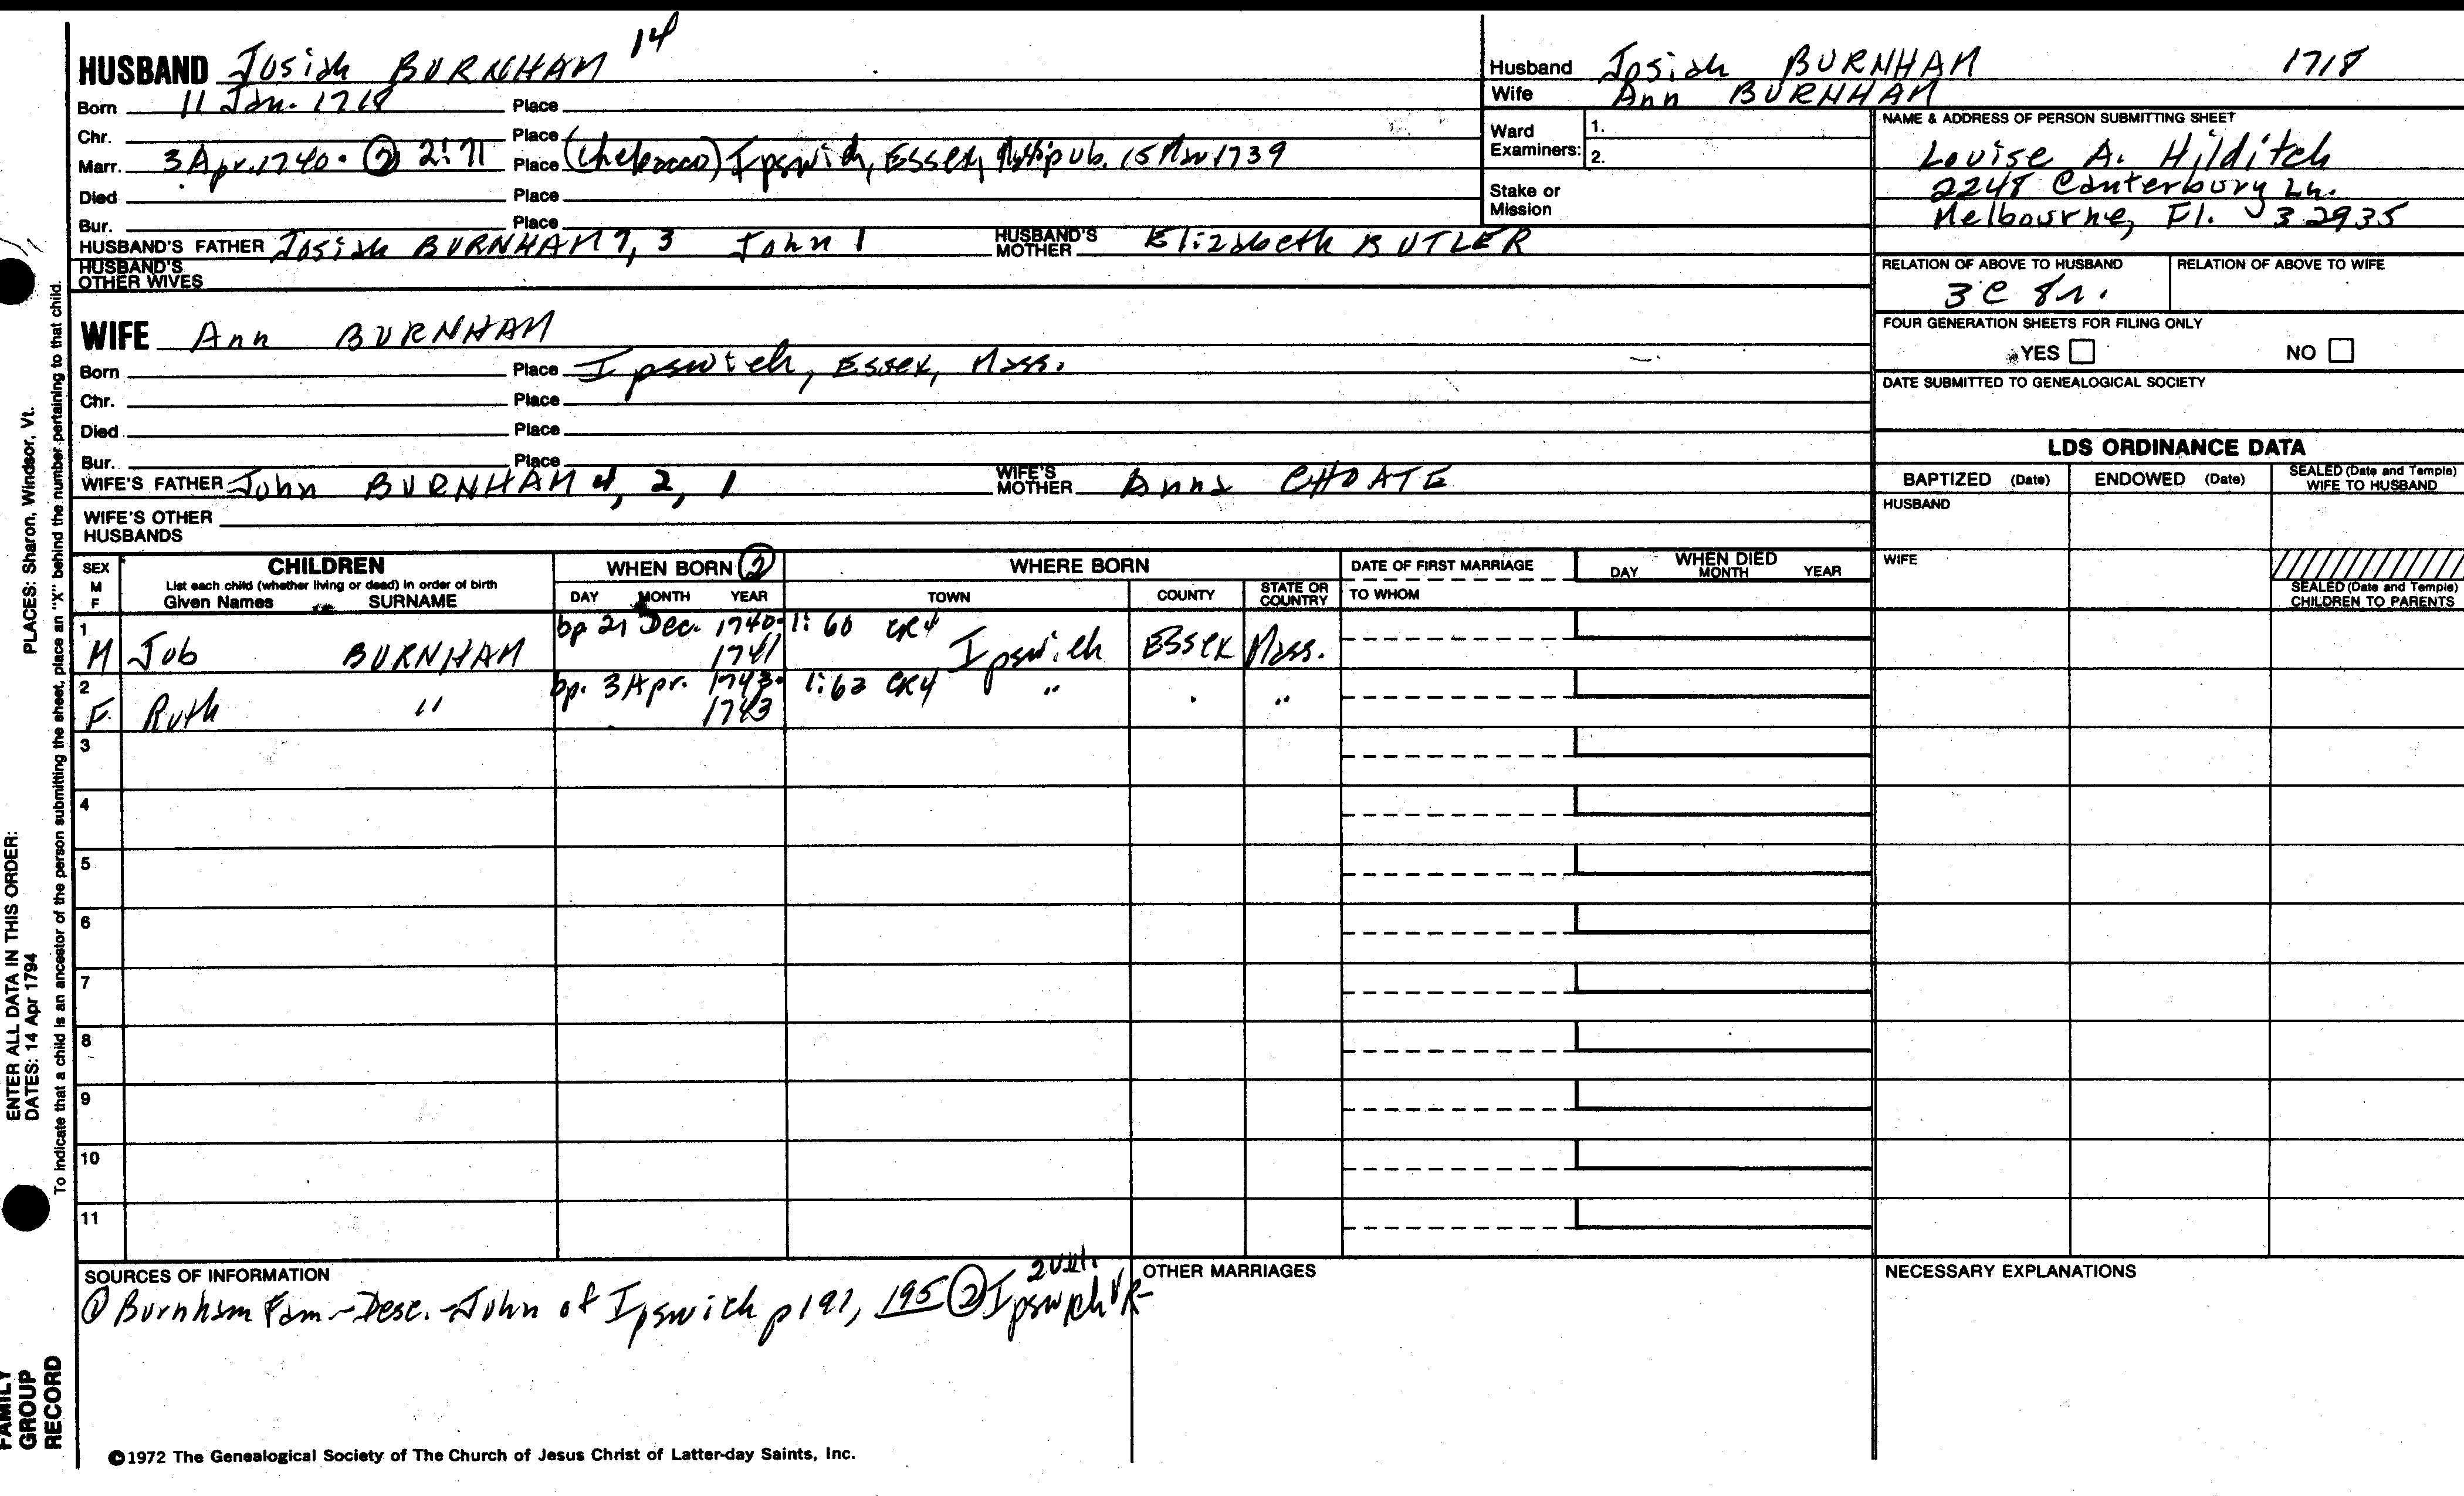 HUSBAND Josiah BURNHAM 14
Born 11 Jan. 1718 Place
Chr. Place
Marr. 3 Apr. 1740. ② 2:71 Place (Chebacco) Ipswich, Essex, pub. 15 Mar 1739
Died Place
Bur. Place
HUSBAND'S FATHER Josiah BURNHAM 7, 3 John 1 HUSBAND'S MOTHER Elizabeth BUTLER
HUSBAND'S OTHER WIVES
WIFE Ann BURNHAM
Born Place Ipswich, Essex, Mass.
Chr. Place
Died Place
Bur. Place
WIFE'S FATHER John BURNHAM 4, 2, 1 WIFE'S MOTHER Anna CHOATE
WIFE'S OTHER HUSBANDS
Husband Josiah BURNHAM 1718
Wife Ann BURNHAM
Ward Examiners: 1.
2.
Stake or Mission
NAME & ADDRESS OF PERSON SUBMITTING SHEET
Louise A. Hilditch
2248 Canterbury Ln.
Melbourne, Fl. 32935
RELATION OF ABOVE TO HUSBAND RELATION OF ABOVE TO WIFE
3C 8r.
FOUR GENERATION SHEETS FOR FILING ONLY
YES NO
DATE SUBMITTED TO GENEALOGICAL SOCIETY
LDS ORDINANCE DATA
BAPTIZED (Date) ENDOWED (Date) SEALED (Date and Temple) WIFE TO HUSBAND
HUSBAND
WIFE
SEALED (Date and Temple) CHILDREN TO PARENTS
SEX M F
CHILDREN
List each child (whether living or dead) in order of birth
Given Names SURNAME
WHEN BORN ②
DAY MONTH YEAR
WHERE BORN
TOWN COUNTY STATE OR COUNTRY
DATE OF FIRST MARRIAGE
TO WHOM
WHEN DIED
DAY MONTH YEAR
1 M Job BURNHAM bp 21 Dec. 1740-1741 1:60 CR4 Ipswich Essex Mass.
2 F. Ruth " bp. 3 Apr. 1743-1743 1:62 CR4 " " "
3
4
5
6
7
8
9
10
11
SOURCES OF INFORMATION
① Burnham Fam-Desc.-John of Ipswich p 191, 195 ② Ipswich VR-
OTHER MARRIAGES
NECESSARY EXPLANATIONS
©1972 The Genealogical Society of The Church of Jesus Christ of Latter-day Saints, Inc.
ENTER ALL DATA IN THIS ORDER:
DATES: 14 Apr 1794 PLACES: Sharon, Windsor, Vt.
To indicate that a child is an ancestor of the person submitting the sheet, place an "X" behind the number pertaining to that child.
FAMILY
GROUP
RECORD